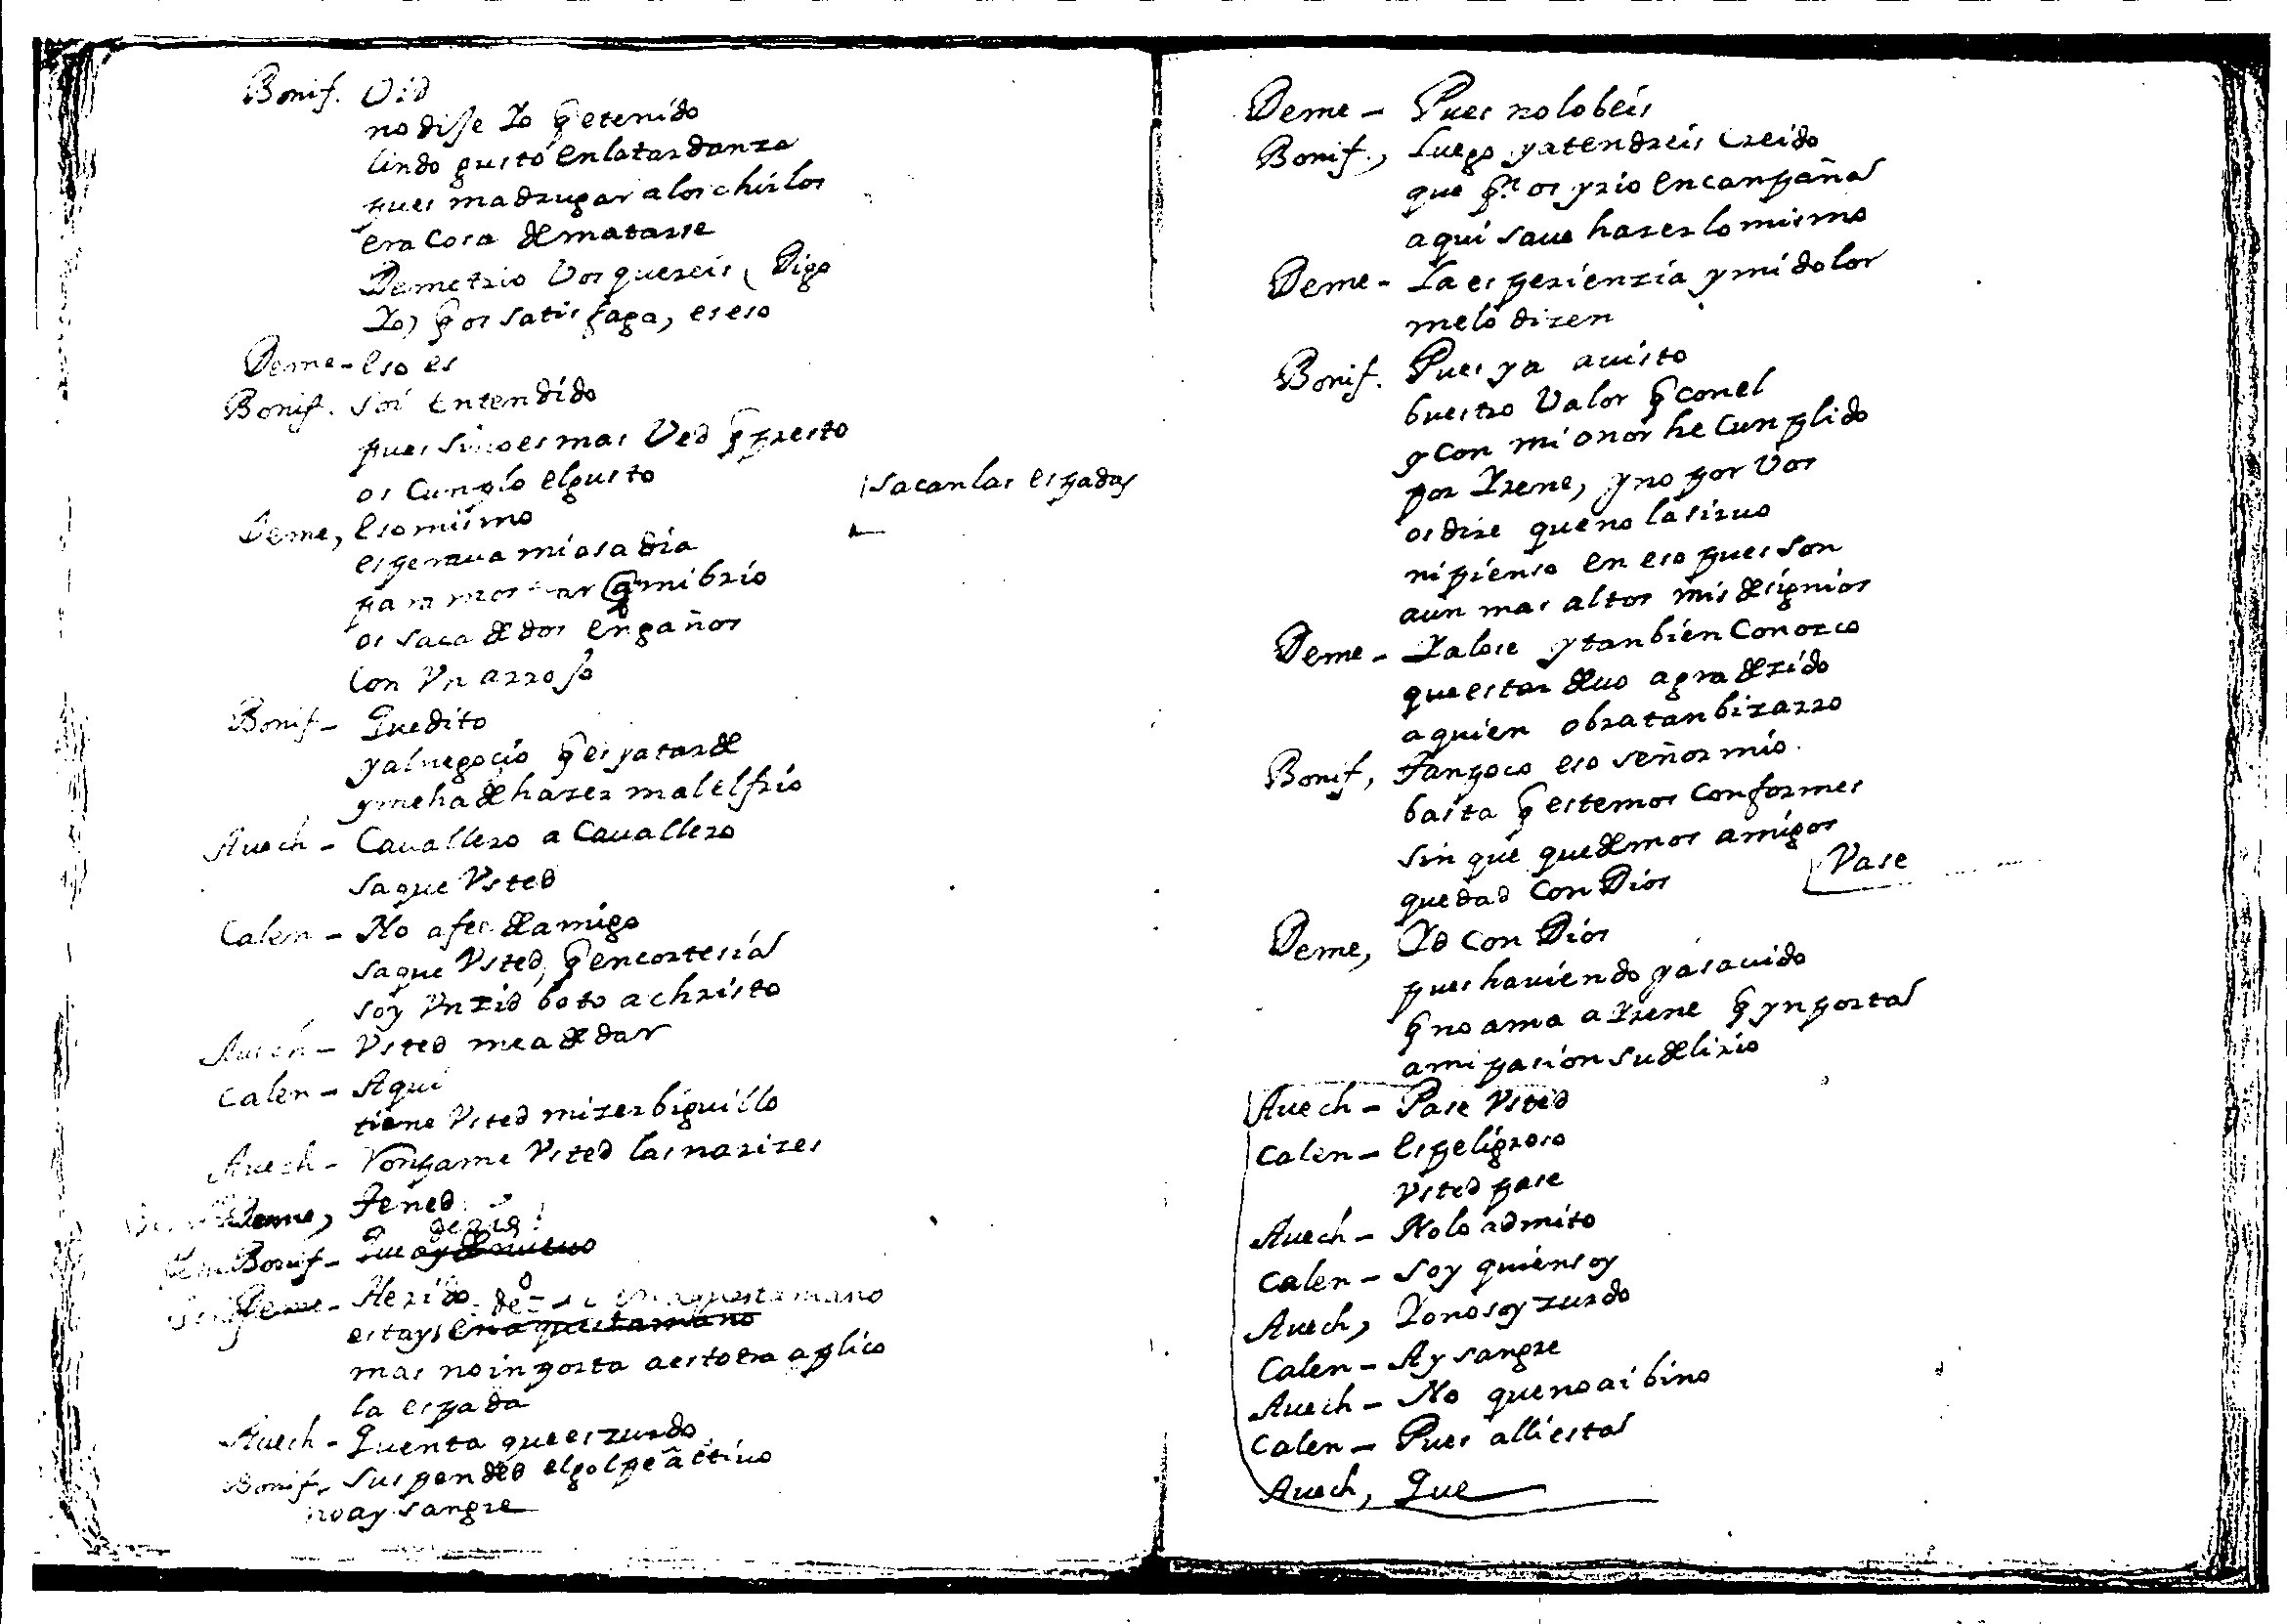 Bonif. Oid
no dije Yo q̃ e tenido
lindo gusto en la tardanza
pues madrugar a los chirlos
era cosa de matarse
Demetrio Vos quereis (Digo
Yo) q̃ os satisfaga, es eso
Deme - eso es
Bonif. soi entendido
pues si no es mas Ved q̃ presto
os cunplo el gusto
sacan las espadas
Deme, eso mismo
esperaua mi osadia
para mostrar q̃ mi brio
os saca de dos engaños
con Vn arrojo
Bonif - Quedito
y al negocio q̃ es ya tarde
y me ha de hazer mal el frio
Auech - Cauallero a Cauallero
saque Vsted
Calen - No a fee de amigo
saque Vsted, q̃ en cortesias
soy Vn zid boto a christo
Auech - Vsted me a de dar
Calen - Aqui
tiene Vsted mi zerbiguillo
Auech - Pongame Vsted las narizes
Deme, Tened
Bonif - Que ay de nueuo
Deme - Herido
estays en aquesta mano
en aquesta mano
mas no inporta a estotra aplico
la espada
Auech - Quenta que es zurdo
Bonif - suspended el golpe actiuo
no ay sangre
Deme - Pues no lo beis
Bonif., Luego ya tendreis creido
que qn os yrio en canpaña
aqui saue hazer lo mismo
Deme - La esperienzia y mi dolor
me lo dizen
Bonif. Pues ya a uisto
buestro Valor q̃ con el
y con mi onor he cunplido
por Yrene, y no por Vos
os dire que no la siruo
ni pienso en eso pues son
aun mas altos mis designios
Deme - Ya lo se y tanbien conozco
que estar deuo agradezido
a quien obra tan bizarro
Bonif, Tanpoco eso señor mio
basta q̃ estemos conformes
sin que quedemos amigos
quedad con Dios
Vase
Deme, Yd con Dios
pues hauiendo ya sauido
q̃ no ama a Yrene q̃ ynporta
a mi pasion su delirio
Auech - Pase Vsted
Calen - es peligroso
Vsted pase
Auech - No lo admito
Calen - soy quien soy
Auech, Yo no soy zurdo
Calen - Ay sangre
Auech - No que no ai bino
Calen - Pues alli esta
Auech, Que